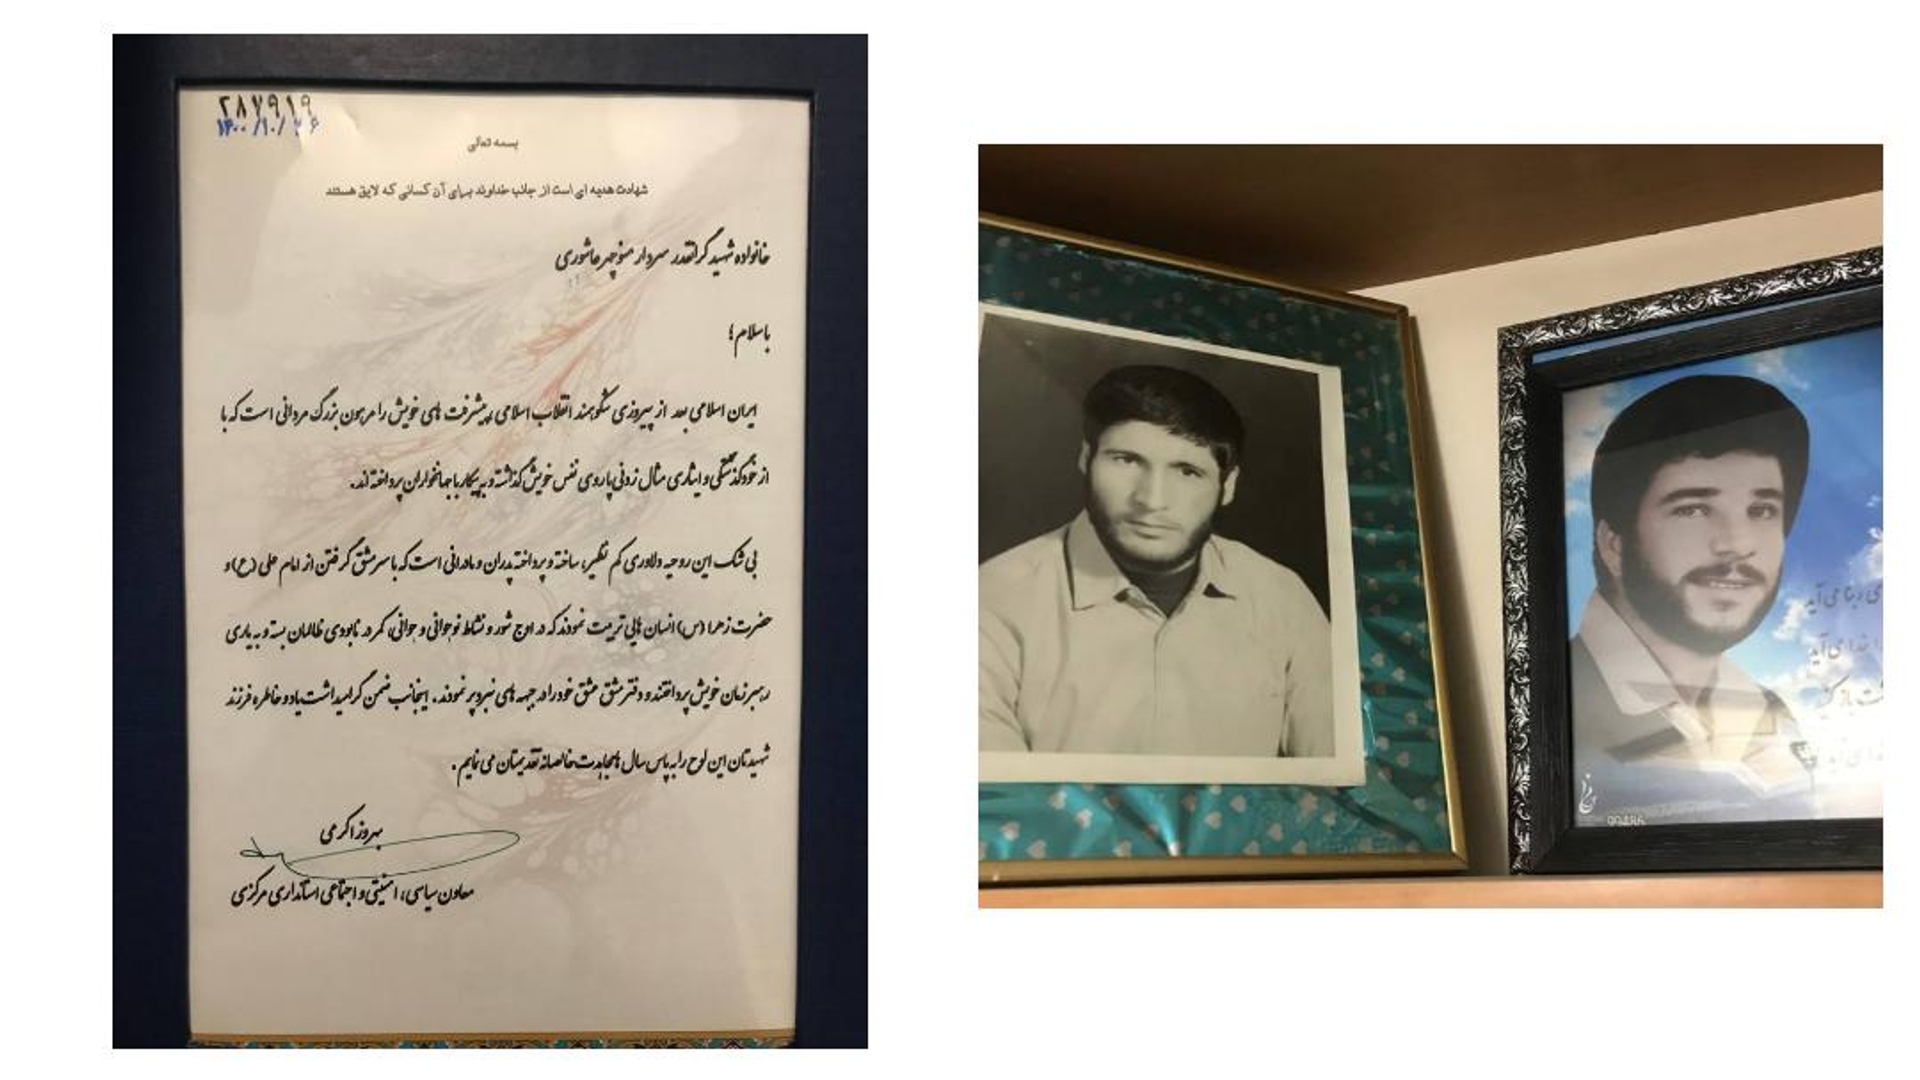 ۲۸۷۹۱۹
۱۴۰۰/۱۰/۲۶
بسمه تعالی
شهادت هدیه ای است از جانب خداوند برای آن کسانی که لایق هستند
خانواده شهید گرانقدر سردار منوچهر عاشوری
باسلام؛
ایران اسلامی بعد از پیروزی شکوهمند انقلاب اسلامی پیشرفت های خویش را مرهون بزرگ مردانی است که با
از خودگذشتگی و ایثاری مثال زدنی پا روی نفس خویش گذاشته و به پیکار با جهانخواران پرداخته اند.
بی شک این روحیه دلاوری کم نظیر، ساخته و پرداخته پدران و مادرانی است که با سرمشق گرفتن از امام علی (ع) و
حضرت زهرا (س) انسان هایی تربیت نمودند که در اوج شور و نشاط نوجوانی و جوانی، کمر در نابودی ظالمان بسته و به یاری
رهبر زمان خویش پرداختند و دفتر مشق عشق خود را در جبهه های نبرد پر نمودند. اینجانب ضمن گرامیداشت یاد و خاطره فرزند
شهیدتان این لوح را به پاس سال ها مجاهدت خالصانه تقدیمتان می نمایم.
بهروز اکرمی
معاون سیاسی، امنیتی و اجتماعی استانداری مرکزی
ی ربنا می آید
خدا می آید
باز کنید
می آید
99486